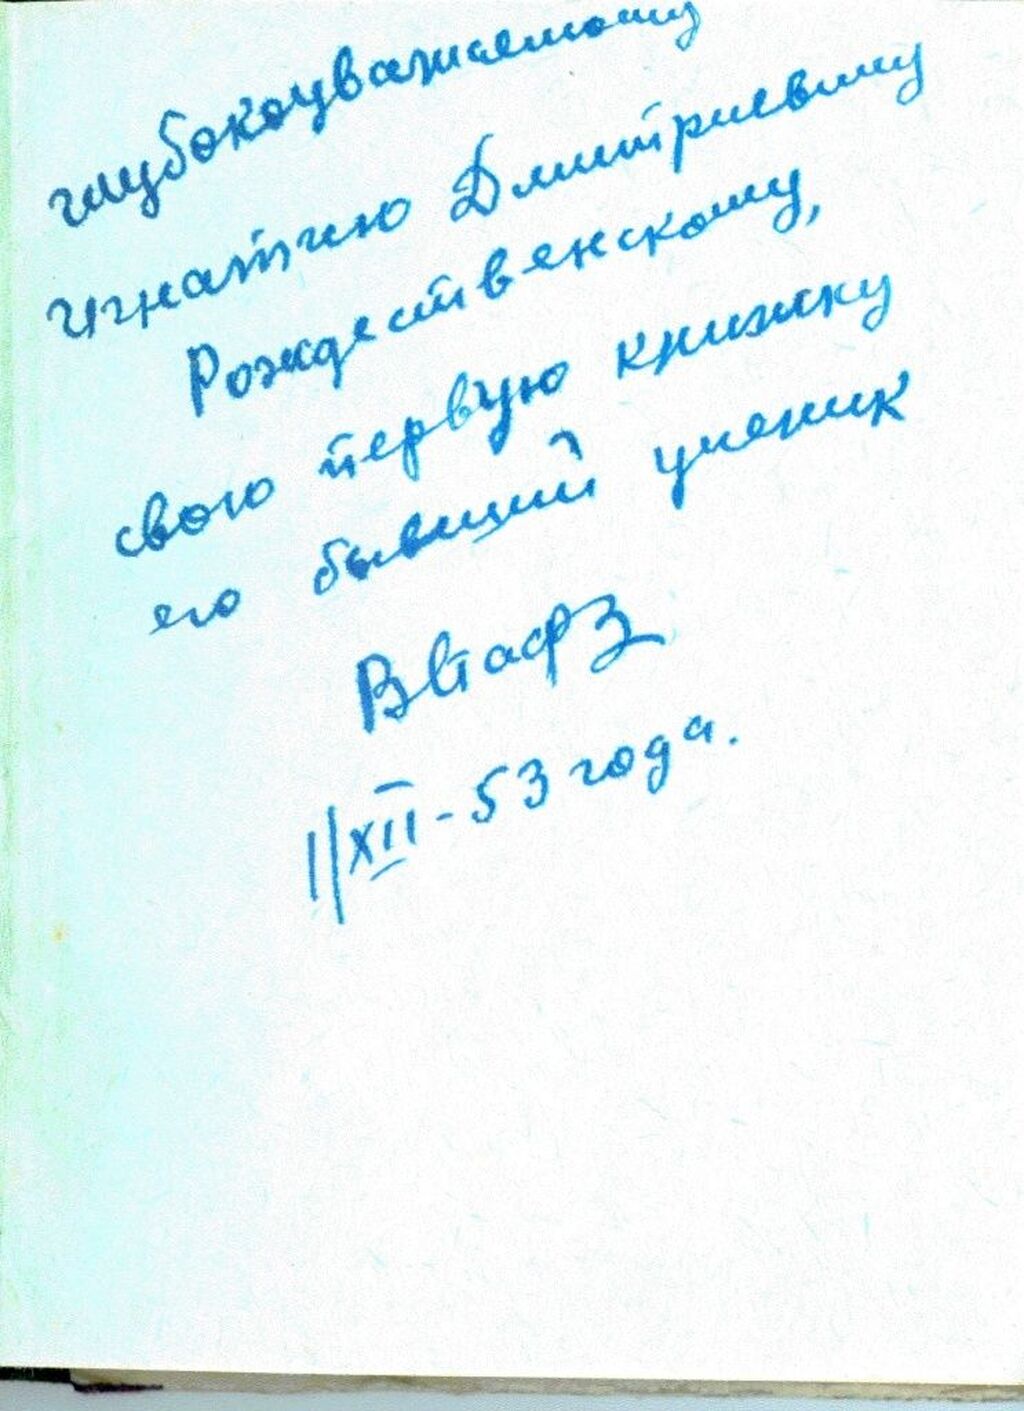 глубокоуважаемому
Игнатию Дмитриевичу
Рождественскому,
свою первую книжку
его бывший ученик
ВАстафь
1/XII-53 года.